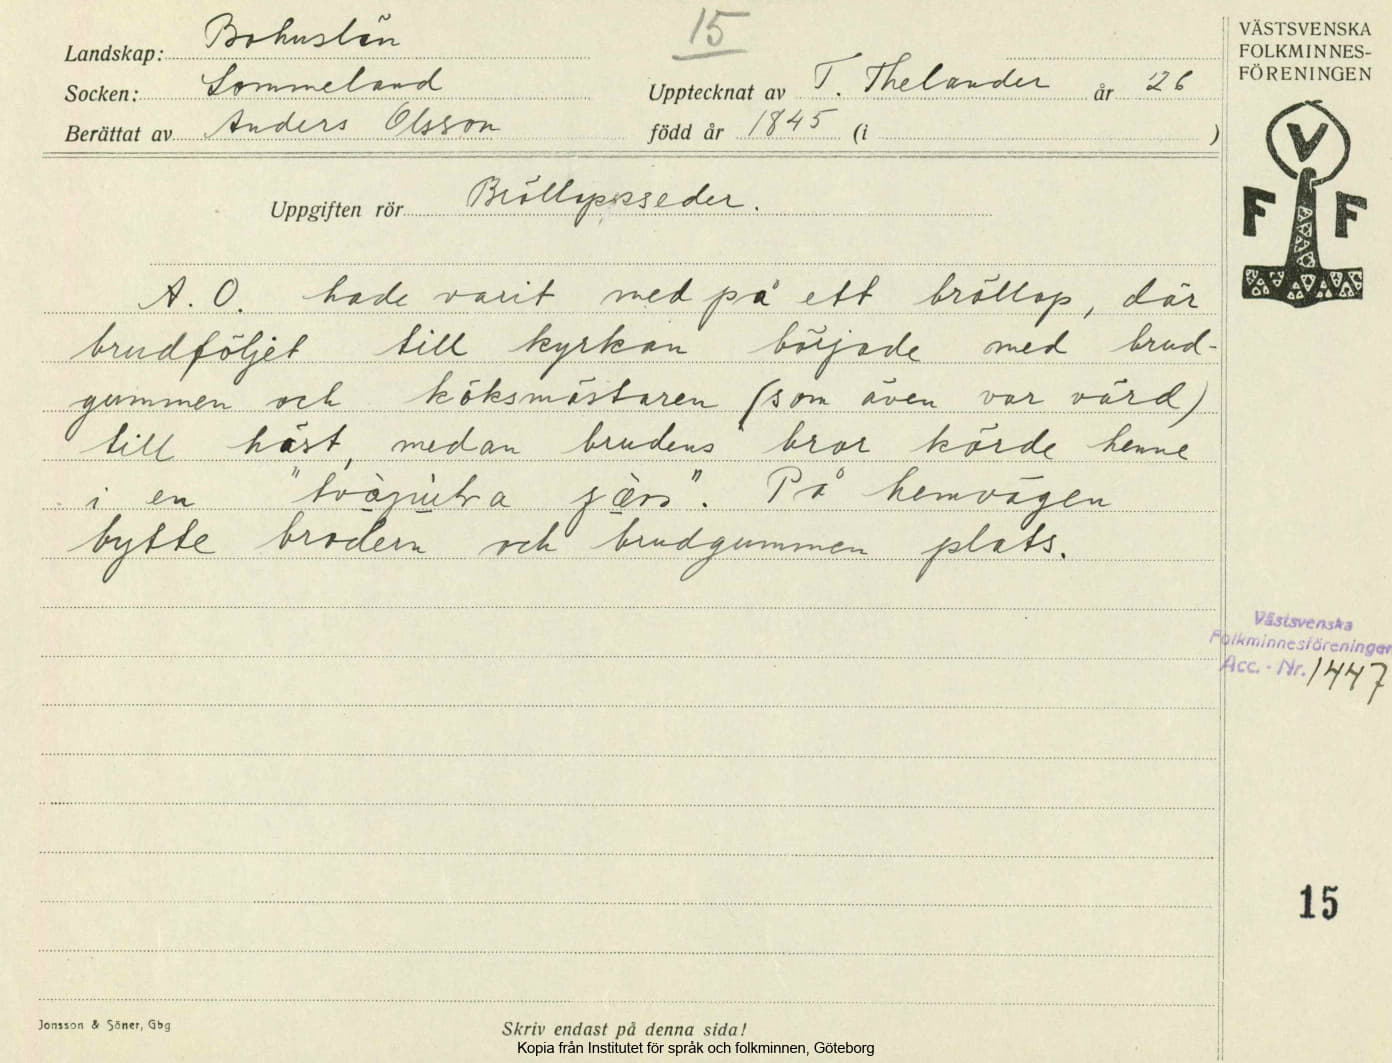 15
Landskap: Bohuslän
Socken: Sommeland
Berättat av Anders Olsson
Upptecknat av T. Thelander år '26
född år 1845 (i )
VÄSTSVENSKA
FOLKMINNES-
FÖRENINGEN
V
F F
Uppgiften rör Bröllopsseder.
A. O. hade varit med på ett bröllop, där
brudföljet till kyrkan började med brud-
gummen och köksmästaren (som även var värd)
till häst, medan brudens bror körde henne
i en "
bytte brodern och brudgummen plats.
". På hemvägen
Västsvenska
Folkminnesföreningen
Acc. - Nr. 1447
15
Jonsson & Söner, Gbg
Skriv endast på denna sida!
Kopia från Institutet för språk och folkminnen, Göteborg